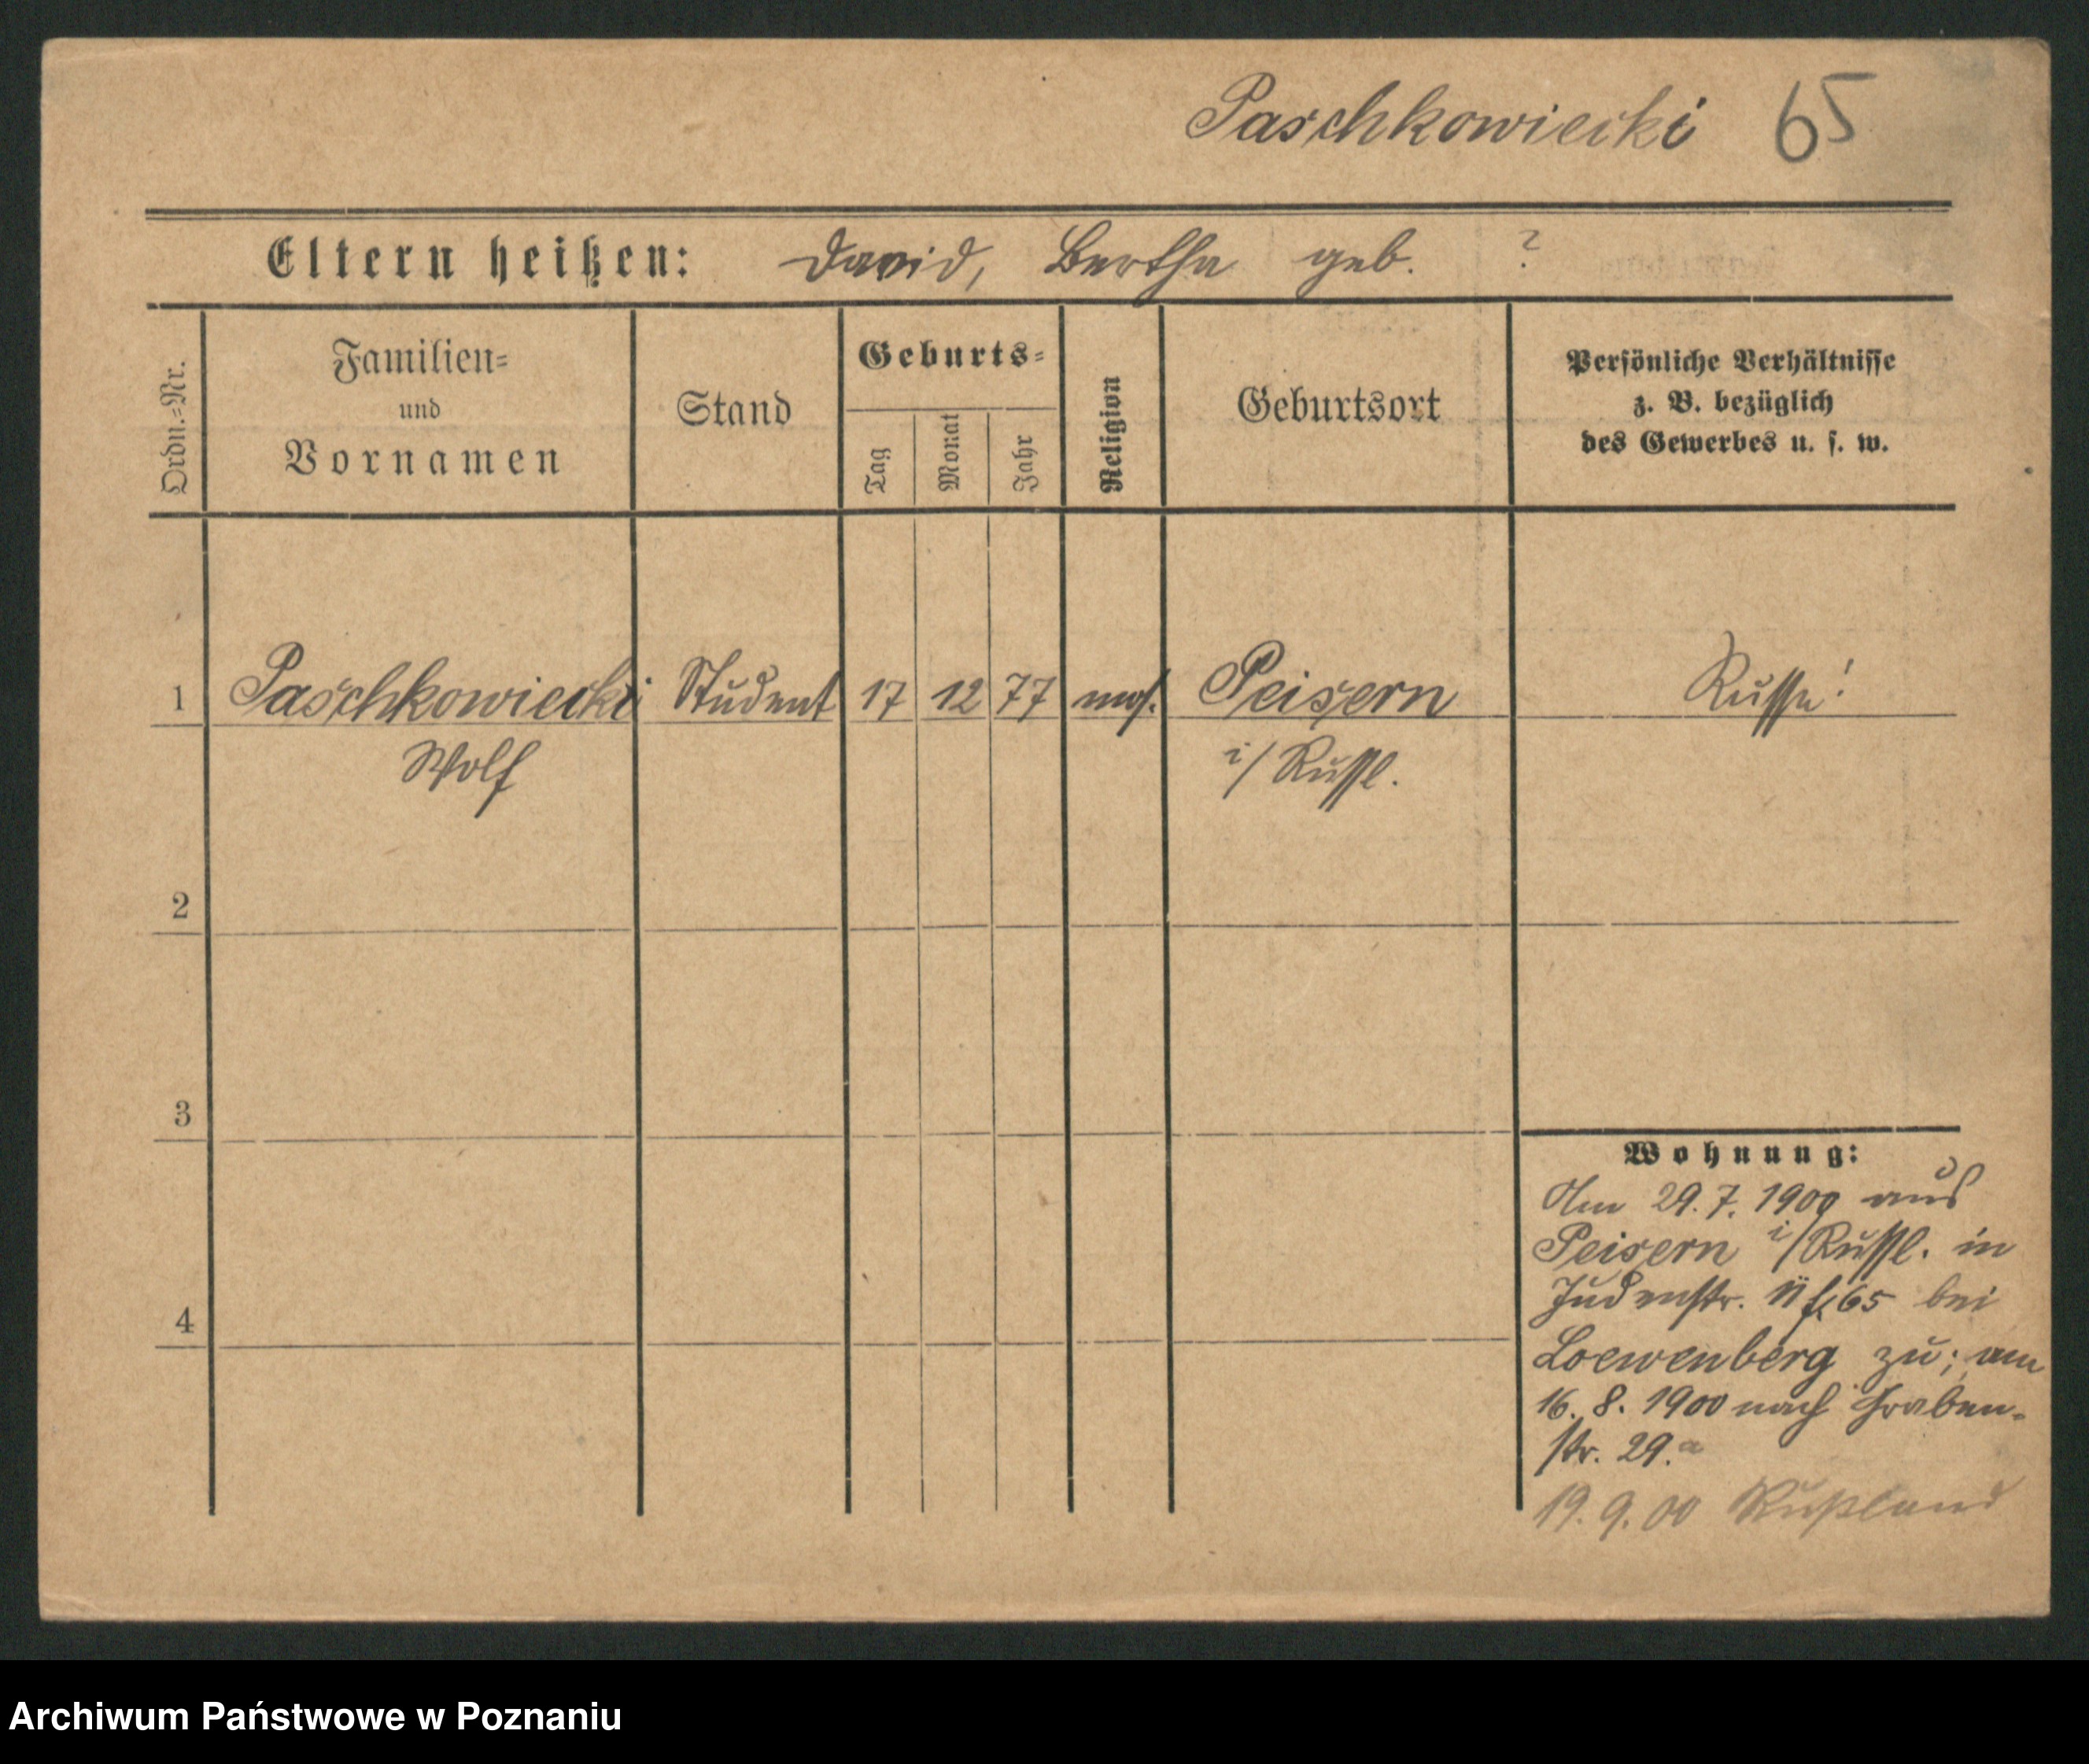 Paschkowiecki 65
Eltern heißen: David, Bertha geb. ?
Ordn.=Nr.
Familien=
und
Vornamen
Stand
Geburts=
Tag
Monat
Jahr
Religion
Geburtsort
Persönliche Verhältnisse
z. B. bezüglich
des Gewerbes u. s. w.
1 Paschkowiecki Student 17 12 77 mos. Peisern Russe!
Wolf i/Russl.
2
3
4
Wohnung:
Am 29.7.1900 aus
Peisern i/Russl. in
Judenstr. bei
Loewenberg zu; am
16.8.1900 nach Graben-
str. 29.a
19.9.00 Rußland
Archiwum Państwowe w Poznaniu